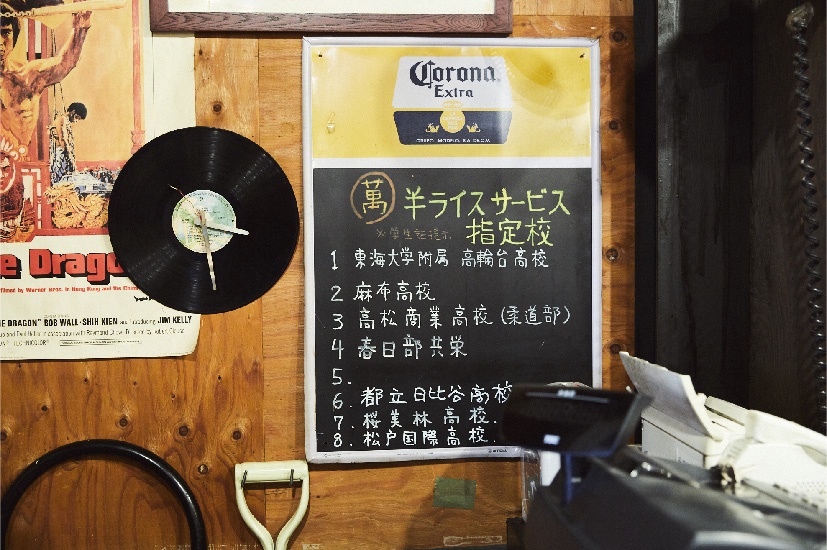 Corona
Extra
GRUPO MODELO, S.A. DE C.V.
萬 半ライスサービス
※学生証提示 指定校
1 東海大学附属 高輪台高校
2 麻布高校
3 高松商業高校(柔道部)
4 春日部共栄
5.
6. 都立日比谷高校
7. 桜美林高校.
8. 松戸国際高校.
e Drago
filmed by Warner Bros. in Hong Kong and
E DRAGON" BOB WALL·SHIH KIEN and introducing JIM KELLY
TECHNICOLOR